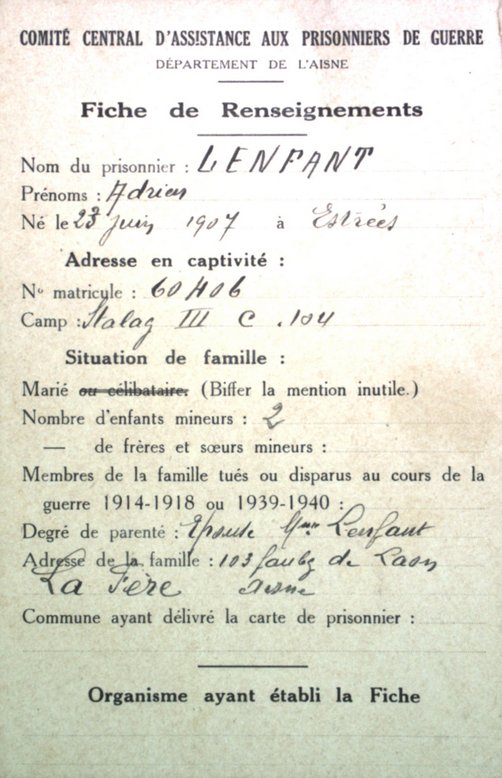 COMITÉ CENTRAL D'ASSISTANCE AUX PRISONNIERS DE GUERRE
DÉPARTEMENT DE L'AISNE
Fiche de Renseignements
Nom du prisonnier : LENFANT
Prénoms : Adrien
Né le 23 juin 1907 à Estrées
Adresse en captivité :
No matricule : 60406
Camp : Stalag III C . 104
Situation de famille :
Marié ou célibataire. (Biffer la mention inutile.)
Nombre d'enfants mineurs : 2
— de frères et sœurs mineurs :
Membres de la famille tués ou disparus au cours de la
guerre 1914-1918 ou 1939-1940 :
Degré de parenté : Epouse Mme Lenfant
Adresse de la famille : 103 faubg de Laon
La Fère aisne
Commune ayant délivré la carte de prisonnier :
Organisme ayant établi la Fiche